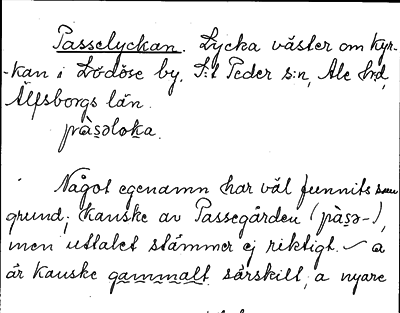 Passelyckan. Lycka väster om kyr-
-kan i Lödöse by, S:t Peder s:n, Ale h:d,
Älfsborgs län.
pàs̲əlok̲a.
Något egenamn har väl funnits som
grund; kanske av Passegården (pàs̲ə-),
men uttalet stämmer ej riktigt. – a
är kanske gammalt särskilt, a nyare